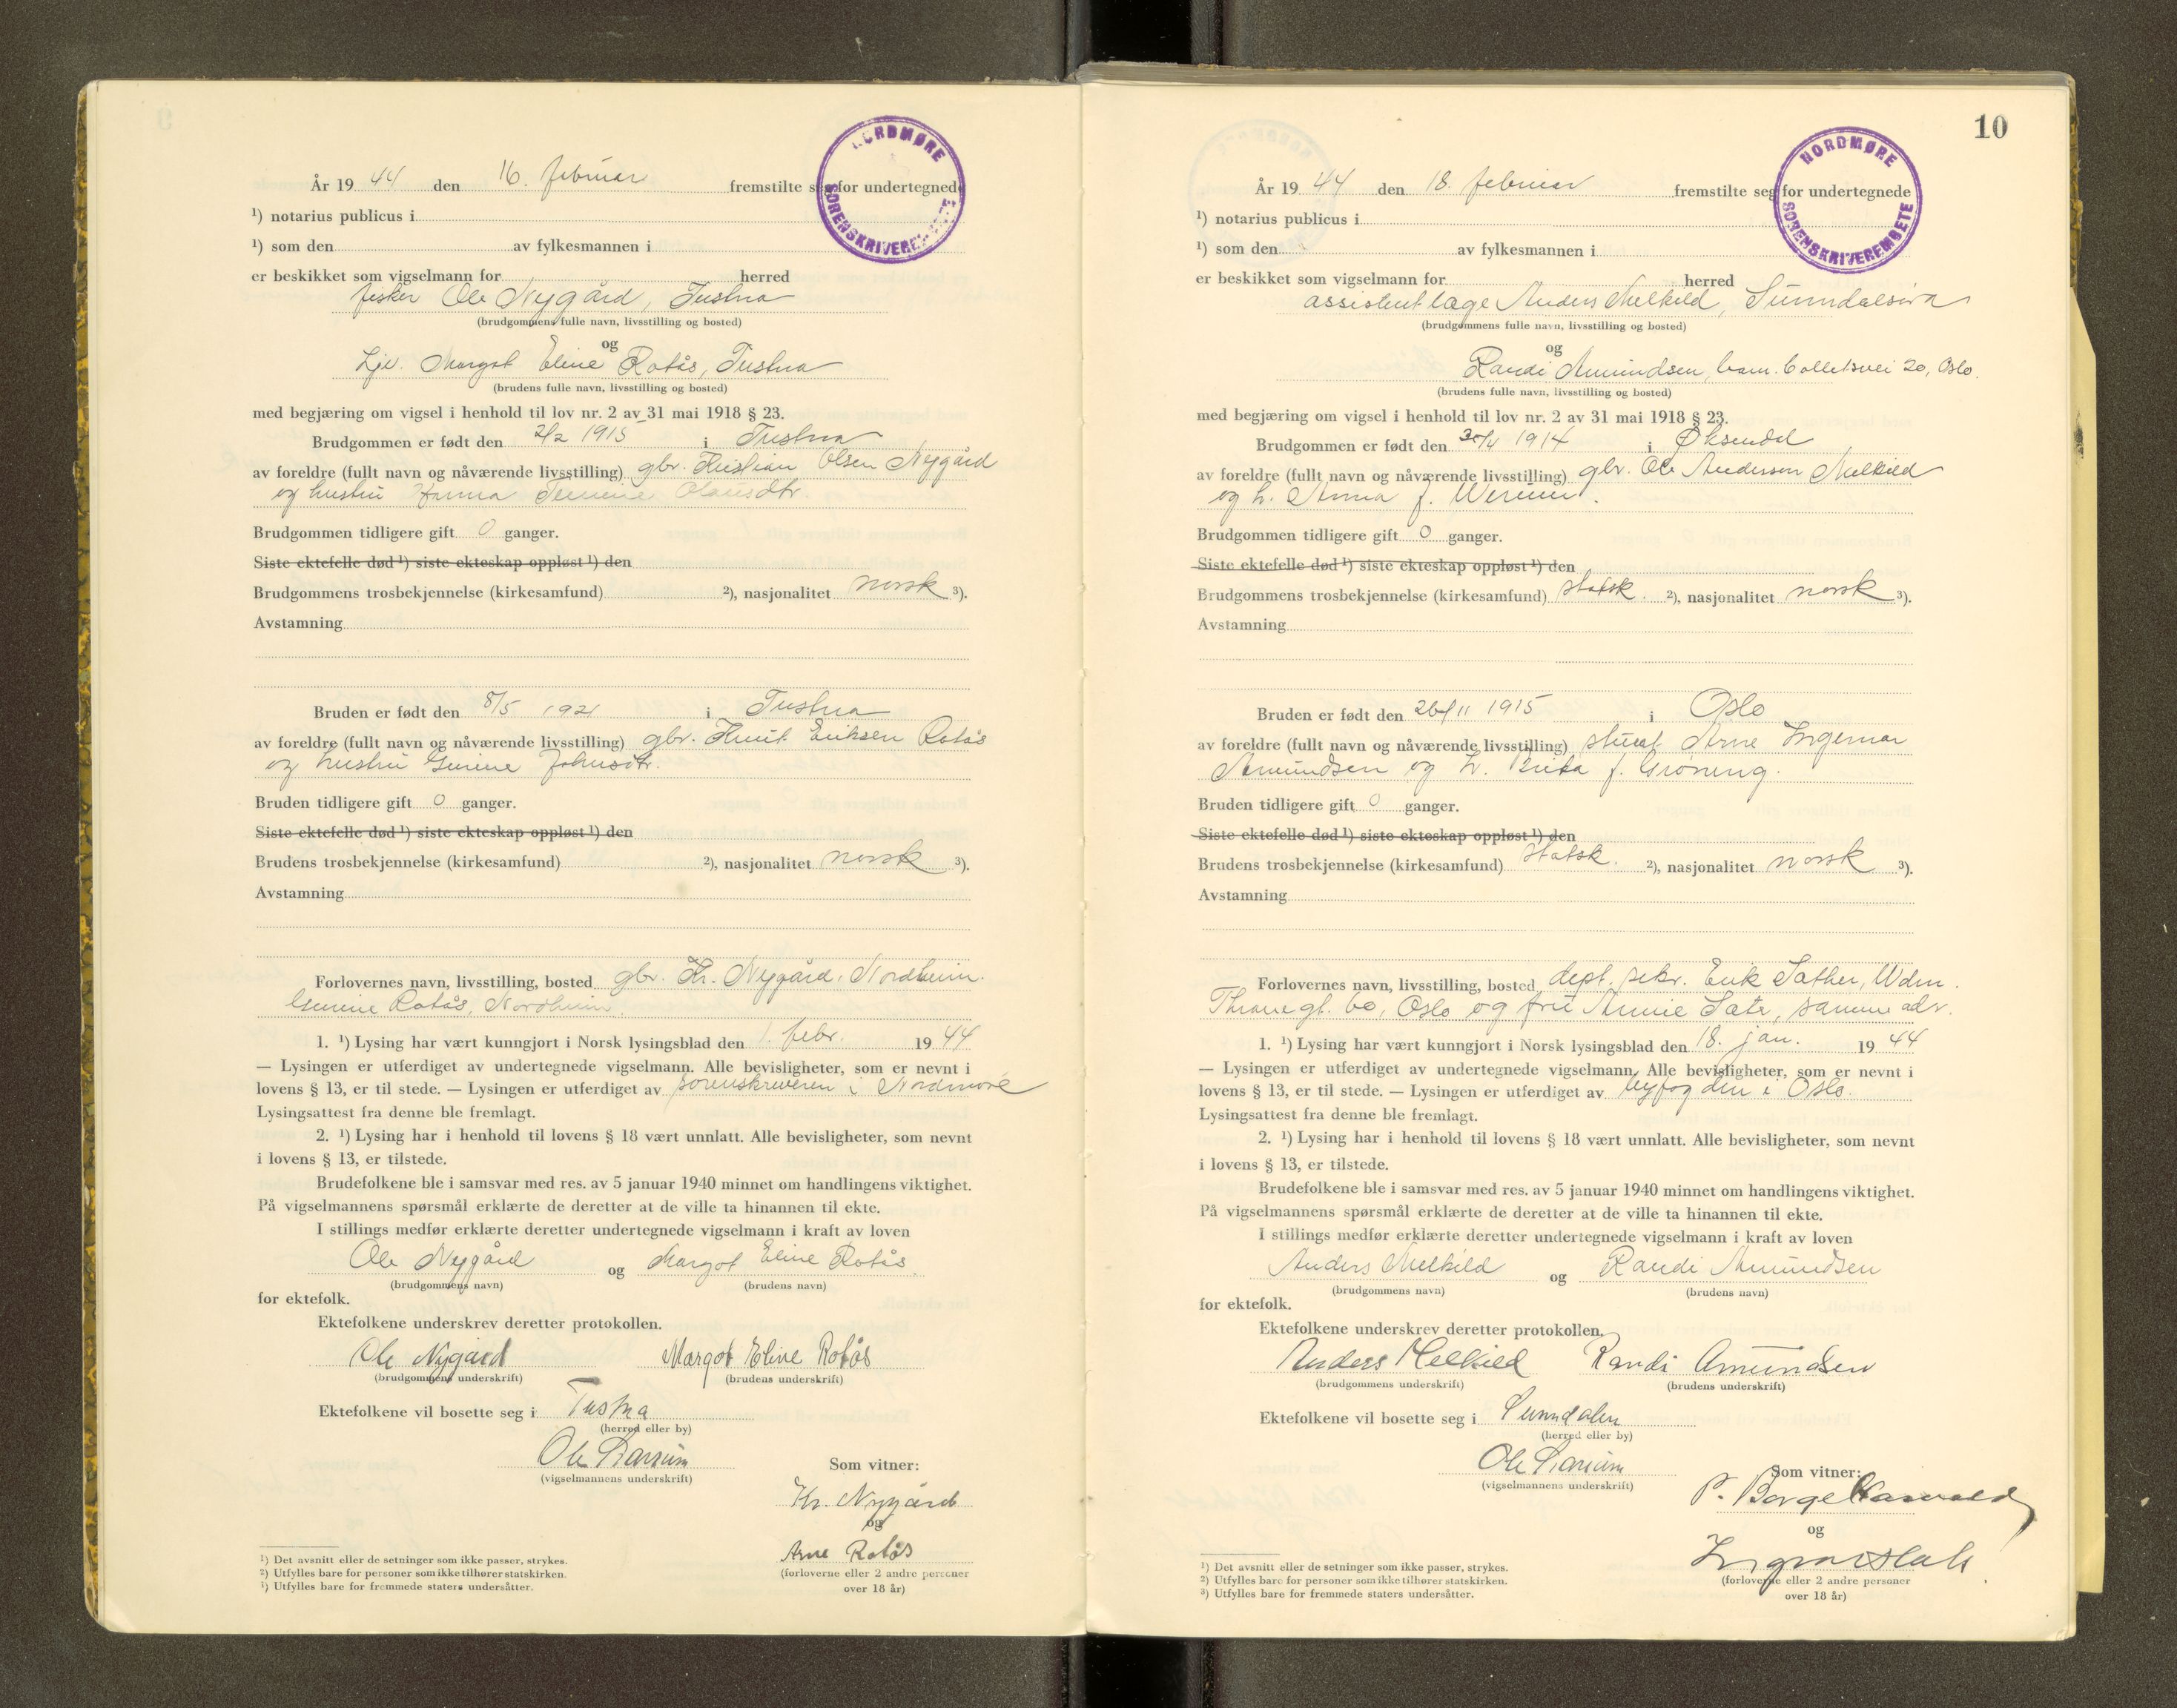 År 1944 den 16. februar fremstilte seg for undertegnede
NORDMØRE SORENSKRIVEREMBETE
¹) notarius publicus i
¹) som den av fylkesmannen i
er beskikket som vigselmann for herred
fisker Ole Nygård, Tustna
(brudgommens fulle navn, livsstilling og bosted)
og
Margot Eline Rotås, Tustna
(brudens fulle navn, livsstilling og bosted)
med begjæring om vigsel i henhold til lov nr. 2 av 31 mai 1918 § 23.
Brudgommen er født den 2/2 1915 i Tustna
av foreldre (fullt navn og nåværende livsstilling) gbr. Kristian Olsen Nygård
og hustru Hanna Olausdtr.
Brudgommen tidligere gift 0 ganger.
Siste ektefelle død ¹) siste ekteskap oppløst ¹) den
Brudgommens trosbekjennelse (kirkesamfund) ²), nasjonalitet norsk ³).
Avstamning
Bruden er født den 8/5 1921 i Tustna
av foreldre (fullt navn og nåværende livsstilling) gbr. Knut Eriksen Rotås
og hustru Gurine Johnsdtr.
Bruden tidligere gift 0 ganger.
Siste ektefelle død ¹) siste ekteskap oppløst ¹) den
Brudens trosbekjennelse (kirkesamfund) ²), nasjonalitet norsk ³).
Avstamning
Forlovernes navn, livsstilling, bosted gbr. Kr. Nygård, Nordheim.
Gurine Rotås, Nordheim.
1. ¹) Lysing har vært kunngjort i Norsk lysingsblad den 1. febr. 1944
— Lysingen er utferdiget av undertegnede vigselmann. Alle bevisligheter, som er nevnt i
lovens § 13, er til stede. — Lysingen er utferdiget av sorenskriveren i Nordmøre
Lysingsattest fra denne ble fremlagt.
2. ¹) Lysing har i henhold til lovens § 18 vært unnlatt. Alle bevisligheter, som nevnt
i lovens § 13, er tilstede.
Brudefolkene ble i samsvar med res. av 5 januar 1940 minnet om handlingens viktighet.
På vigselmannens spørsmål erklærte de deretter at de ville ta hinannen til ekte.
I stillings medfør erklærte deretter undertegnede vigselmann i kraft av loven
Ole Nygård og Margot Eline Rotås.
(brudgommens navn) (brudens navn)
for ektefolk.
Ektefolkene underskrev deretter protokollen.
Ole Nygård Margot Eline Rotås
(brudgommens underskrift) (brudens underskrift)
Ektefolkene vil bosette seg i Tustna
(herred eller by)
Ole
(vigselmannens underskrift)
Som vitner:
Kr. Nygård
og
Arne Rotås
(forloverne eller 2 andre personer
over 18 år)
¹) Det avsnitt eller de setninger som ikke passer, strykes.
²) Utfylles bare for personer som ikke tilhører statskirken.
³) Utfylles bare for fremmede staters undersåtter.
10
År 1944 den 18. februar fremstilte seg for undertegnede
NORDMØRE SORENSKRIVEREMBETE
¹) notarius publicus i
¹) som den av fylkesmannen i
er beskikket som vigselmann for herred
assistentlæge Anders Melkild, Sunndalsøra
(brudgommens fulle navn, livsstilling og bosted)
og
Randi Amundsen, Cam. Colletsvei 20, Oslo.
(brudens fulle navn, livsstilling og bosted)
med begjæring om vigsel i henhold til lov nr. 2 av 31 mai 1918 § 23.
Brudgommen er født den 30/4 1914 i Øksendal
av foreldre (fullt navn og nåværende livsstilling) gbr. Ole Andersen Melkild
og h. Anna f.
Brudgommen tidligere gift 0 ganger.
Siste ektefelle død ¹) siste ekteskap oppløst ¹) den
Brudgommens trosbekjennelse (kirkesamfund) statsk. ²), nasjonalitet norsk ³).
Avstamning
Bruden er født den 26/11 1915 i Oslo
av foreldre (fullt navn og nåværende livsstilling) Arne Ingemar
Amundsen og h. f. Grønning.
Bruden tidligere gift 0 ganger.
Siste ektefelle død ¹) siste ekteskap oppløst ¹) den
Brudens trosbekjennelse (kirkesamfund) statsk. ²), nasjonalitet norsk ³).
Avstamning
Forlovernes navn, livsstilling, bosted dept. sekr. Erik Sæther,
Thranegt. 60, Oslo og frue Annie samme adr.
1. ¹) Lysing har vært kunngjort i Norsk lysingsblad den 18. jan. 1944
— Lysingen er utferdiget av undertegnede vigselmann. Alle bevisligheter, som er nevnt i
lovens § 13, er til stede. — Lysingen er utferdiget av byfogden i Oslo.
Lysingsattest fra denne ble fremlagt.
2. ¹) Lysing har i henhold til lovens § 18 vært unnlatt. Alle bevisligheter, som nevnt
i lovens § 13, er tilstede.
Brudefolkene ble i samsvar med res. av 5 januar 1940 minnet om handlingens viktighet.
På vigselmannens spørsmål erklærte de deretter at de ville ta hinannen til ekte.
I stillings medfør erklærte deretter undertegnede vigselmann i kraft av loven
Anders Melkild og Randi Amundsen
(brudgommens navn) (brudens navn)
for ektefolk.
Ektefolkene underskrev deretter protokollen.
Anders Melkild Randi Amundsen
(brudgommens underskrift) (brudens underskrift)
Ektefolkene vil bosette seg i Sunndalen
(herred eller by)
Ole
(vigselmannens underskrift)
Som vitner:
P. Borge
og
(forloverne eller 2 andre personer
over 18 år)
¹) Det avsnitt eller de setninger som ikke passer, strykes.
²) Utfylles bare for personer som ikke tilhører statskirken.
³) Utfylles bare for fremmede staters undersåtter.